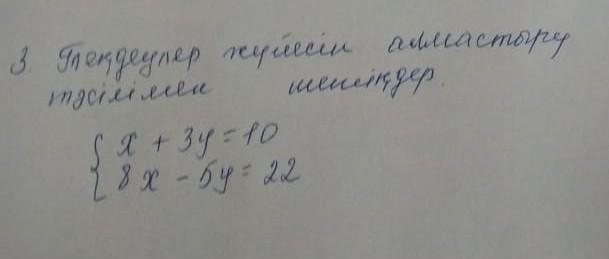 3. Теңдеулер жүйесін алмастыру
тәсілімен шешіңдер.
x + 3y = 10
8x - 5y = 22